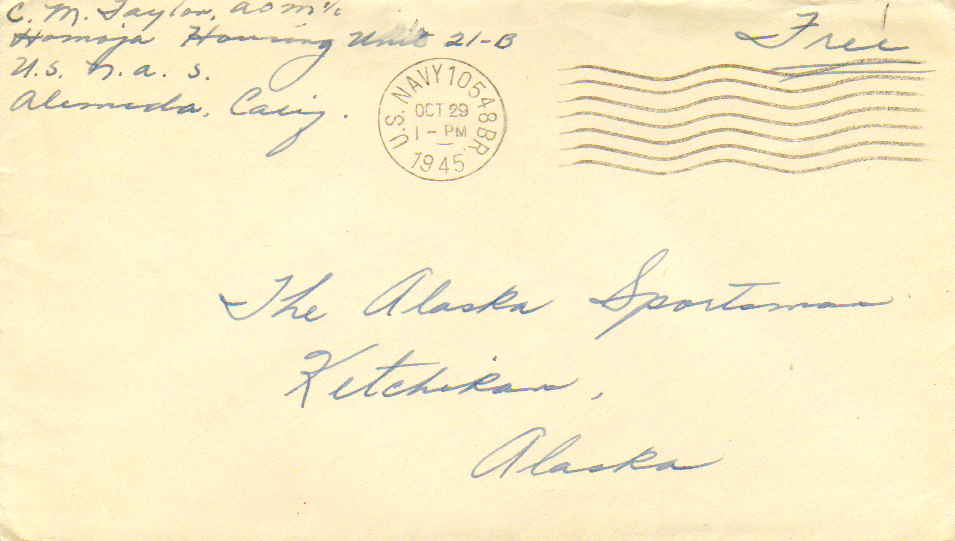 C. M. Taylor, AOM 1/c
Homoja Housing Unit 21-B
U.S. N.A.S.
Alameda, Calif.
U.S. NAVY 10548 BR.
OCT 29
1 - PM
1945
Free
The Alaska Sportsman
Ketchikan,
Alaska